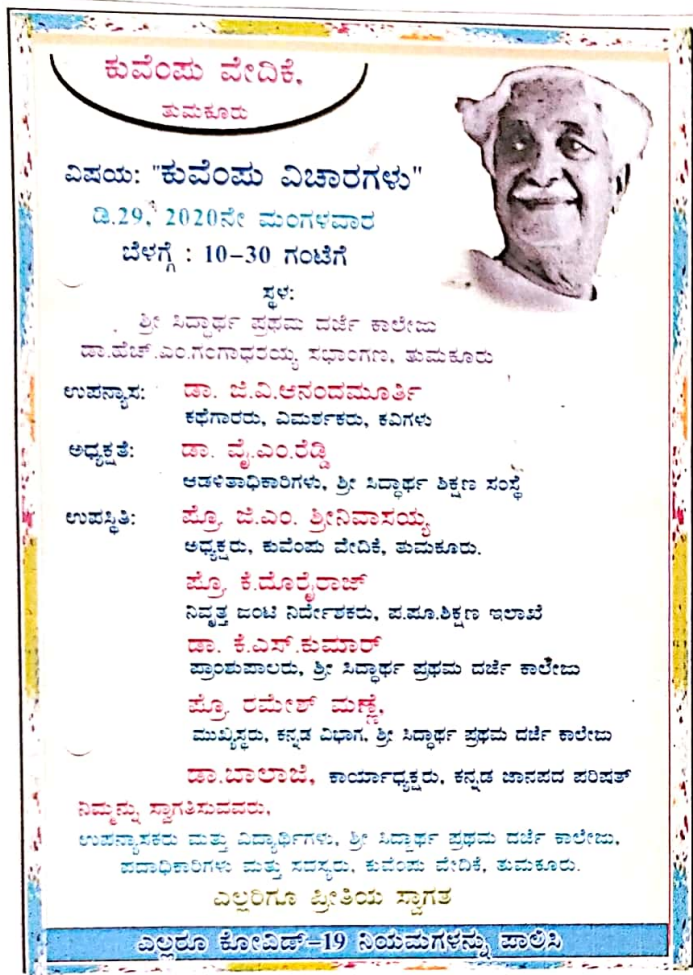 ಕುವೆಂಪು ವೇದಿಕೆ,
ತುಮಕೂರು
ವಿಷಯ: "ಕುವೆಂಪು ವಿಚಾರಗಳು"
ಡಿ.29, 2020ನೇ ಮಂಗಳವಾರ
ಬೆಳಗ್ಗೆ : 10-30 ಗಂಟೆಗೆ
ಸ್ಥಳ:
ಶ್ರೀ ಸಿದ್ಧಾರ್ಥ ಪ್ರಥಮ ದರ್ಜೆ ಕಾಲೇಜು
ಡಾ.ಹೆಚ್.ಎಂ.ಗಂಗಾಧರಯ್ಯ ಸಭಾಂಗಣ, ತುಮಕೂರು
ಉಪನ್ಯಾಸ: ಡಾ. ಜಿ.ವಿ.ಆನಂದಮೂರ್ತಿ
ಕಥೆಗಾರರು, ವಿಮರ್ಶಕರು, ಕವಿಗಳು
ಅಧ್ಯಕ್ಷತೆ: ಡಾ. ವೈ.ಎಂ.ರೆಡ್ಡಿ
ಆಡಳಿತಾಧಿಕಾರಿಗಳು, ಶ್ರೀ ಸಿದ್ಧಾರ್ಥ ಶಿಕ್ಷಣ ಸಂಸ್ಥೆ
ಉಪಸ್ಥಿತಿ: ಪ್ರೊ. ಜಿ.ಎಂ. ಶ್ರೀನಿವಾಸಯ್ಯ
ಅಧ್ಯಕ್ಷರು, ಕುವೆಂಪು ವೇದಿಕೆ, ತುಮಕೂರು.
ಪ್ರೊ. ಕೆ.ದೊರೈರಾಜ್
ನಿವೃತ್ತ ಜಂಟಿ ನಿರ್ದೇಶಕರು, ಪ.ಪೂ.ಶಿಕ್ಷಣ ಇಲಾಖೆ
ಡಾ. ಕೆ.ಎಸ್.ಕುಮಾರ್
ಪ್ರಾಂಶುಪಾಲರು, ಶ್ರೀ ಸಿದ್ಧಾರ್ಥ ಪ್ರಥಮ ದರ್ಜೆ ಕಾಲೇಜು
ಪ್ರೊ. ರಮೇಶ್ ಮಣ್ಣೆ,
ಮುಖ್ಯಸ್ಥರು, ಕನ್ನಡ ವಿಭಾಗ, ಶ್ರೀ ಸಿದ್ಧಾರ್ಥ ಪ್ರಥಮ ದರ್ಜೆ ಕಾಲೇಜು
ಡಾ.ಬಾಲಾಜಿ, ಕಾರ್ಯಾಧ್ಯಕ್ಷರು, ಕನ್ನಡ ಜಾನಪದ ಪರಿಷತ್
ನಿಮ್ಮನ್ನು ಸ್ವಾಗತಿಸುವವರು,
ಉಪನ್ಯಾಸಕರು ಮತ್ತು ವಿದ್ಯಾರ್ಥಿಗಳು, ಶ್ರೀ ಸಿದ್ಧಾರ್ಥ ಪ್ರಥಮ ದರ್ಜೆ ಕಾಲೇಜು,
ಪದಾಧಿಕಾರಿಗಳು ಮತ್ತು ಸದಸ್ಯರು, ಕುವೆಂಪು ವೇದಿಕೆ, ತುಮಕೂರು.
ಎಲ್ಲರಿಗೂ ಪ್ರೀತಿಯ ಸ್ವಾಗತ
ಎಲ್ಲರೂ ಕೋವಿಡ್-19 ನಿಯಮಗಳನ್ನು ಪಾಲಿಸಿ